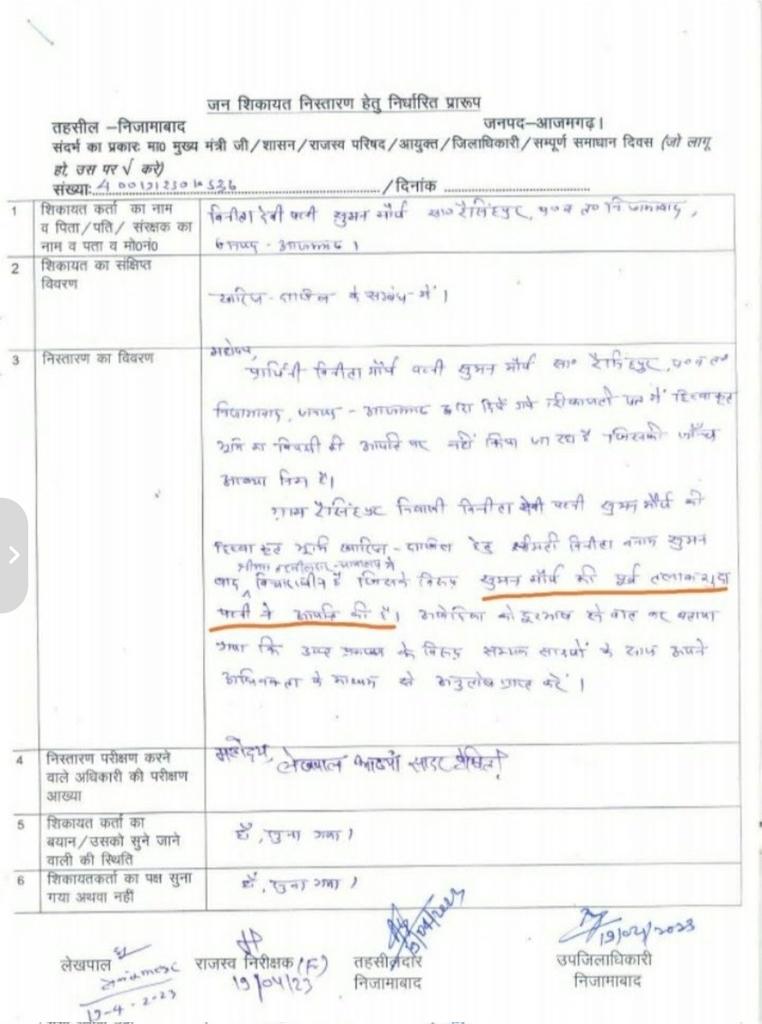 जन शिकायत निस्तारण हेतु निर्धारित प्रारूप
तहसील –निजामाबाद जनपद–आजमगढ़।
संदर्भ का प्रकारः मा0 मुख्य मंत्री जी/शासन/राजस्व परिषद/आयुक्त/जिलाधिकारी/सम्पूर्ण समाधान दिवस (जो लागू
हो, उस पर √ करें)
संख्याः /दिनांक
1 शिकायत कर्ता का नाम
व पिता/पति/ संरक्षक का
नाम व पता व मो0नं0
विनीता देवी पत्नी सुमन मौर्य सा० रैसिंहपुर, प०व त० निजामाबाद,
जनपद - आजमगढ़।
2 शिकायत का संक्षिप्त
विवरण
खारिज-दाखिल के सम्बंध में।
3 निस्तारण का विवरण
महोदय,
प्रार्थिनी विनीता मौर्य पत्नी सुमन मौर्य सा० रैसिंहपुर, प०व त०
निजामाबाद, जनपद - आजमगढ़ द्वारा दिये गये शिकायती पत्र में
भूमि का विपक्षी की आपत्ति पर नहीं किया जा रहा है जिसकी जाँच
आख्या निम्न है।
ग्राम रैसिंहपुर निवासी विनीता देवी पत्नी सुमन मौर्य की
भूमि खारिज-दाखिल हेतु श्रीमती विनीता बनाम सुमन
वाद श्रीमान तहसीलदार न्यायालय में विचाराधीन है जिसके विरुद्ध सुमन मौर्य की पूर्व तलाकशुदा
पत्नी ने आपत्ति की है। आवेदिका को दूरभाष से वात कर बताया
गया कि उक्त प्रकरण के विरुद्ध समस्त साक्ष्यों के साथ अपने
अधिवक्ता के माध्यम से अनुतोष प्राप्त करें।
4 निस्तारण परीक्षण करने
वाले अधिकारी की परीक्षण
आख्या
महोदय, लेखपाल आख्या सादर प्रेषित।
5 शिकायत कर्ता का
बयान/उसको सुने जाने
वाली की स्थिति
हाँ, सुना गया।
6 शिकायतकर्ता का पक्ष सुना
गया अथवा नहीं
हाँ, सुना गया।
लेखपाल
19-4-2023
राजस्व निरीक्षक (F)
19/04/23
तहसीलदार
निजामाबाद
19/04/2023
उपजिलाधिकारी
निजामाबाद